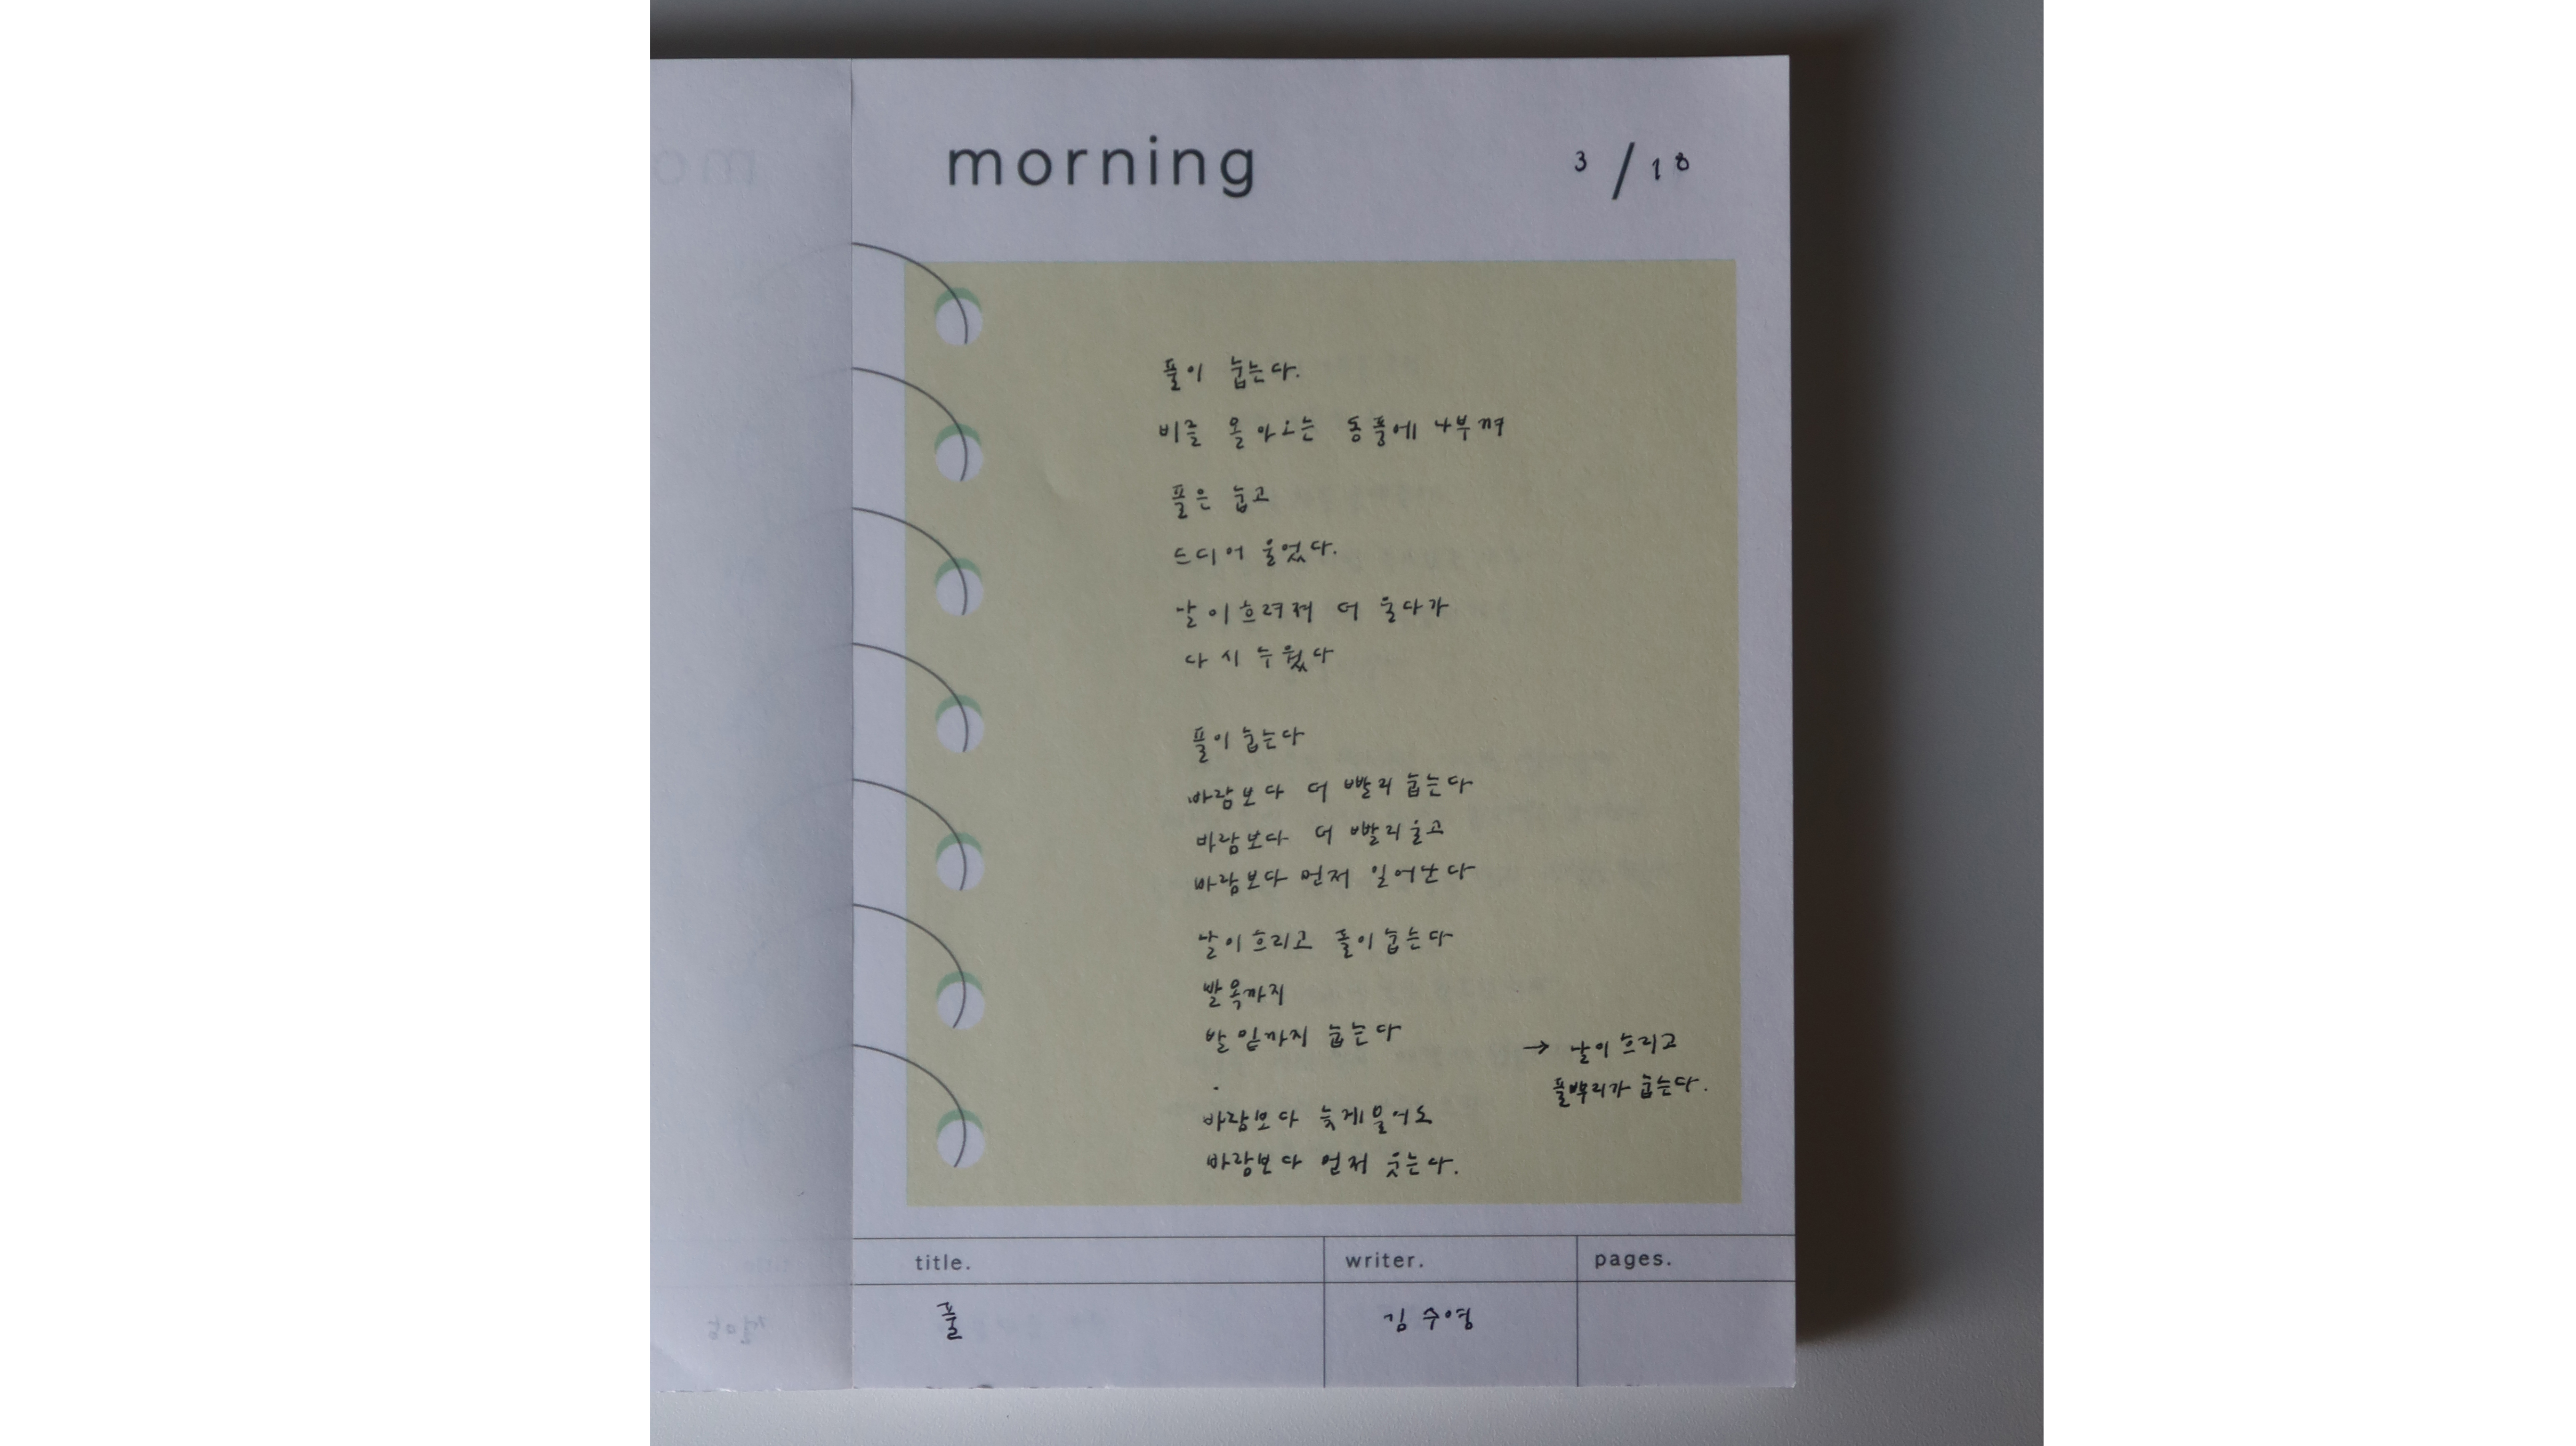 morning
3 / 18
풀이 눕는다.
비를 몰아오는 동풍에 나부껴
풀은 눕고
드디어 울었다.
날이 흐려져 더 울다가
다시 누웠다
풀이 눕는다
바람보다 더 빨리 눕는다
바람보다 더 빨리 울고
바람보다 먼저 일어난다
날이 흐리고 풀이 눕는다
발목까지
발밑까지 눕는다
→ 날이 흐리고
풀뿌리가 눕는다.
.
바람보다 늦게 울어도
바람보다 먼저 웃는다.
title.
writer.
pages.
풀
김수영